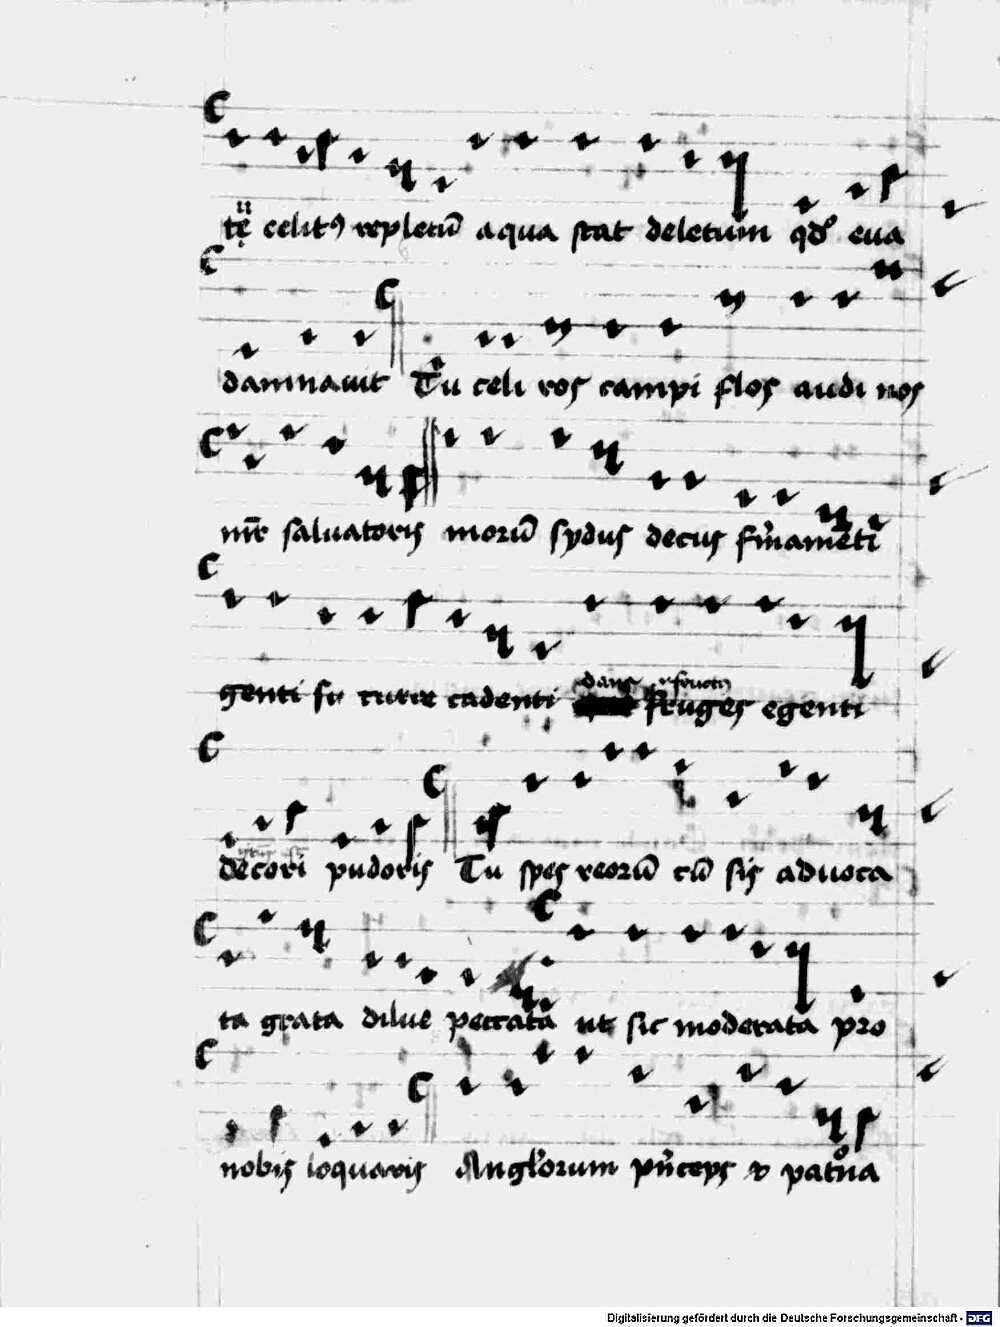 tę celitꝰ repletū aqua stat deletum qd° eua
damnauit Tu celi ros campi flos audi nos
mr̄ saluatoris morū sydus decus f'mamēti
genti su curre cadenti dans fruges egenti
decori pudoris Tu spes reorū cū sis aduoca
ta grata dilue peccata ut sic moderata pro
nobis loquaris Anglorum p'nceps & pat°na
Digitalisierung gefördert durch die Deutsche Forschungsgemeinschaft - DFG